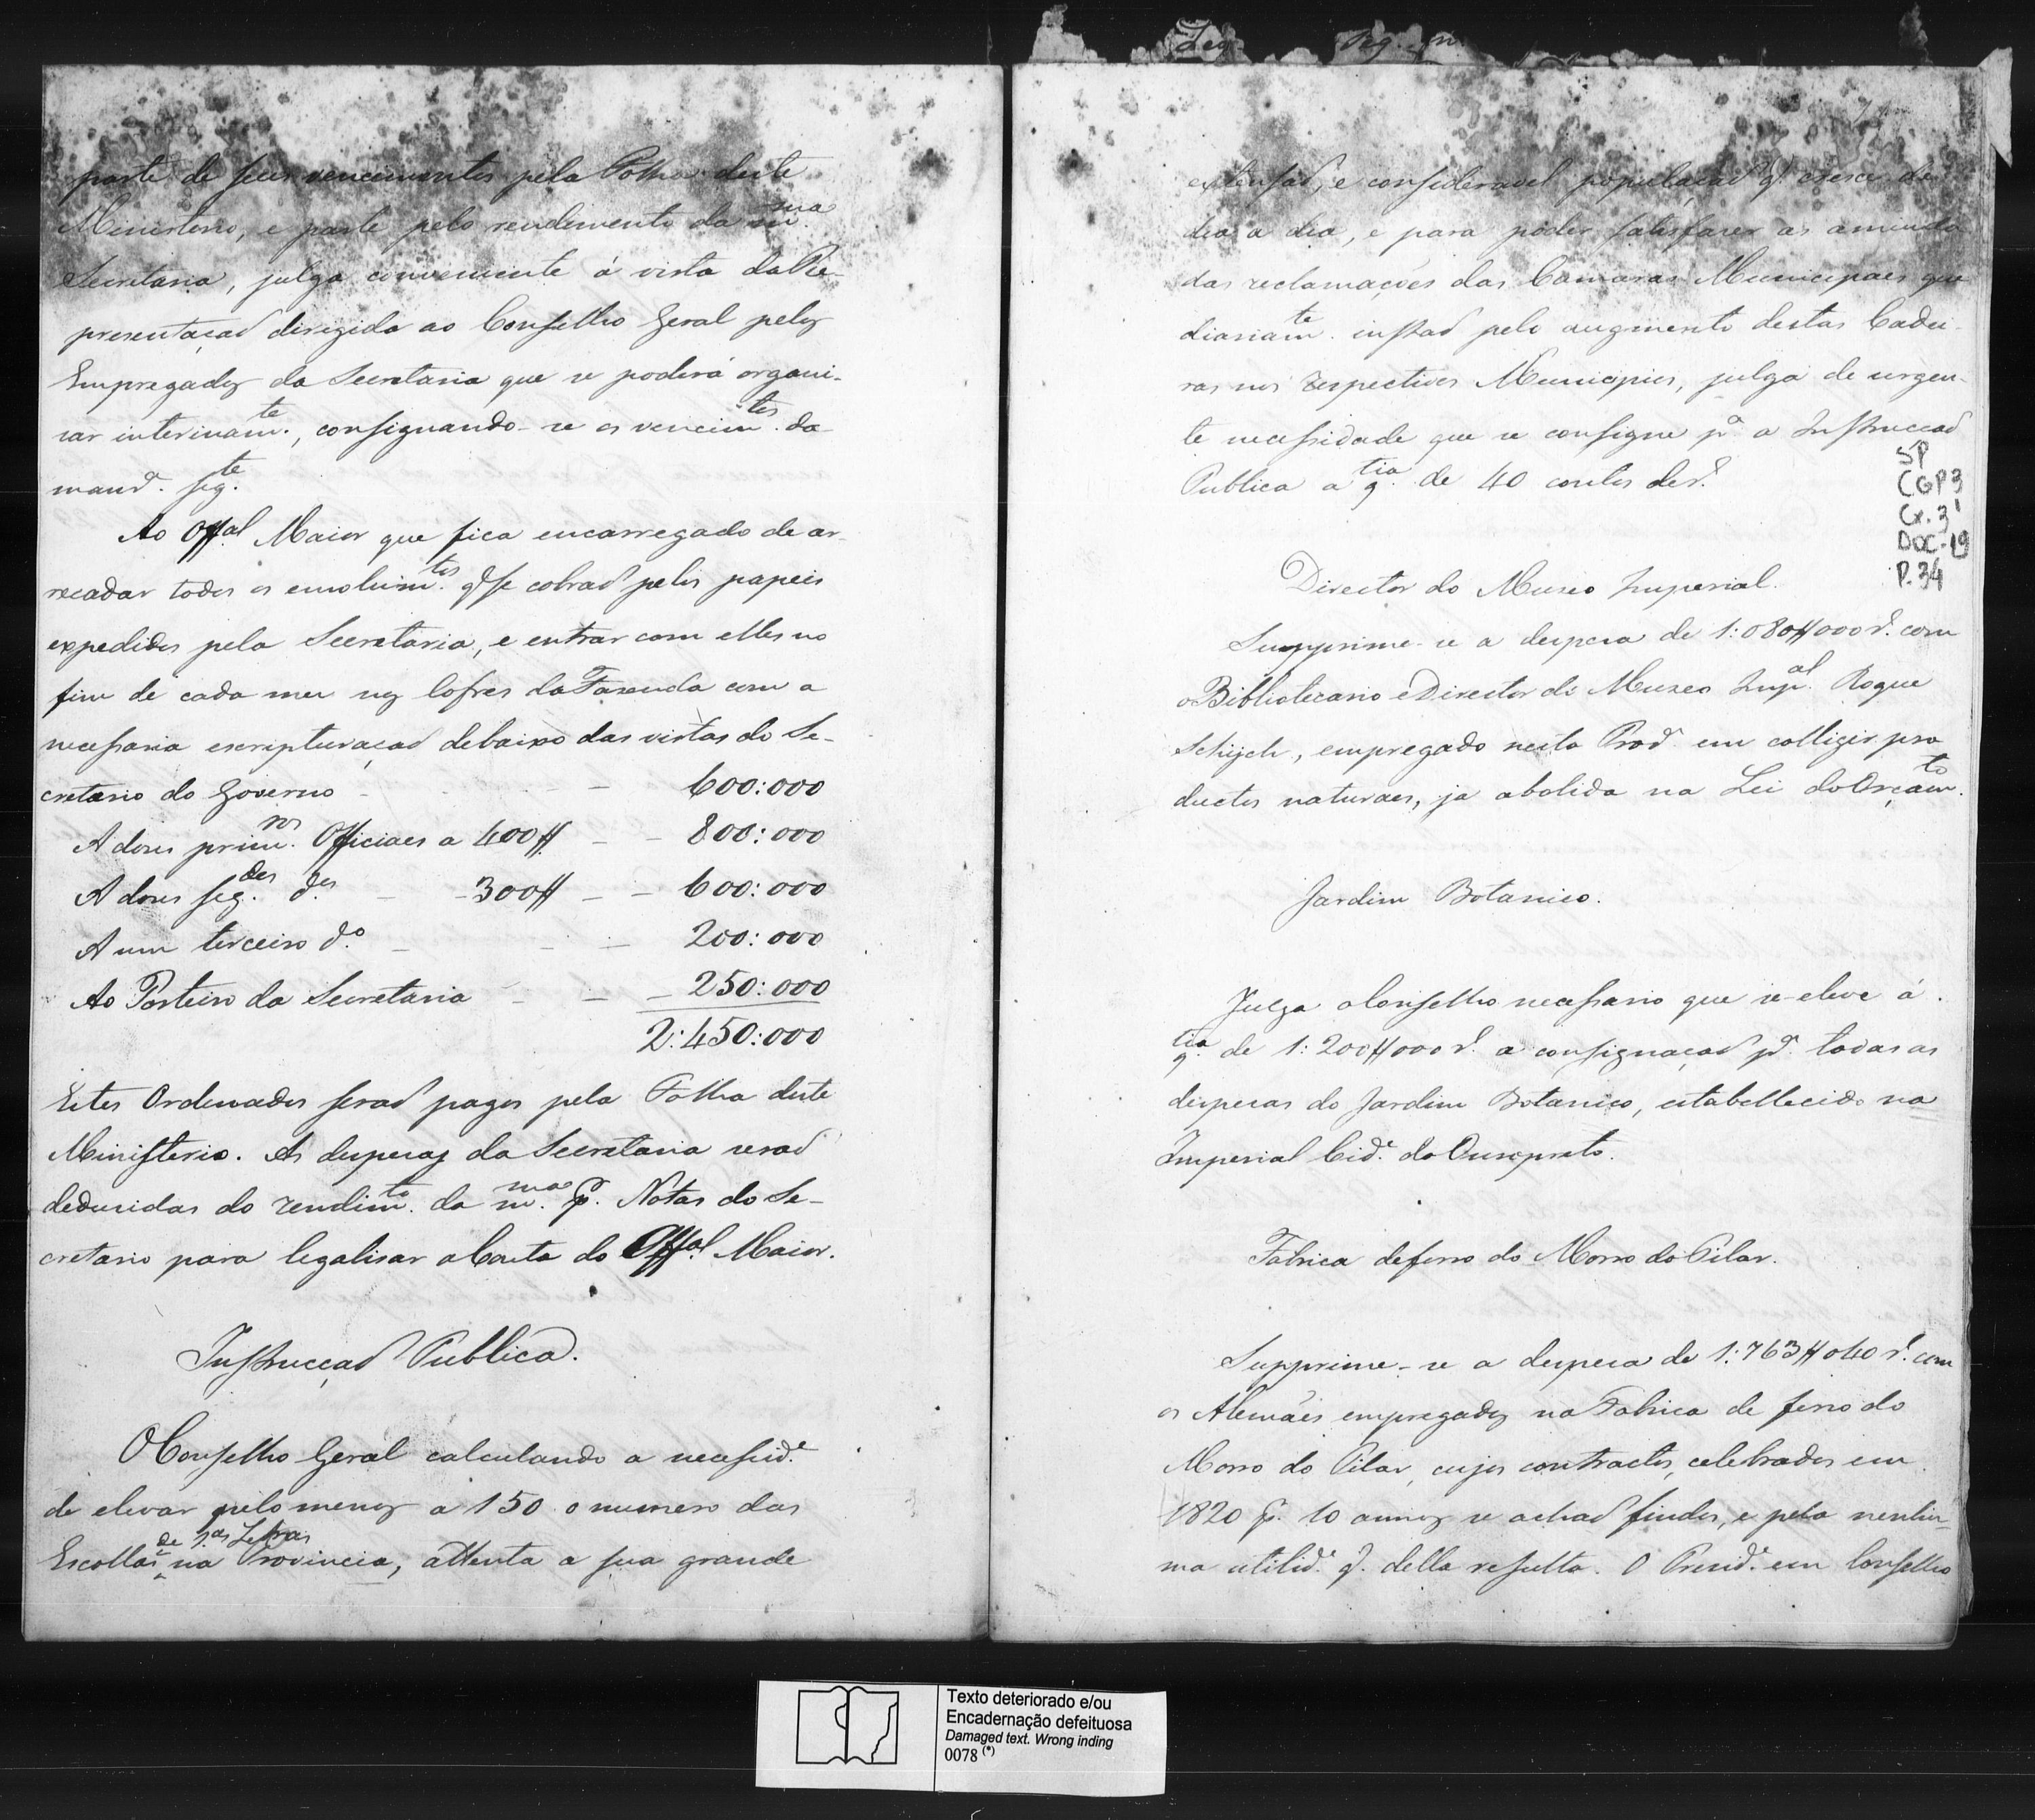 parte de seus vencimentos pela Folha deste
Ministerio, e parte pelo rendimento da m.ma
Secretaria, julga conveniente á vista da Re-
presentaçaõ dirigida ao Conselho Geral pelos
Empregados da Secretaria que se poderá organi-
sar interinam.te, consignando-se os vencim.tos da
man.ra seg.te
Ao Off.al Maior que fica encarregado de ar-
recadar todos os emolum.tos q̃ se cobraõ pelos papeis
expedidos pela Secretaria, e entrar com elles no
fim de cada mez nos Cofres da Fazenda com a
necessaria escripturaçaõ debaixo das vistas do Se-
cretario do Governo - - 600:000
A dous prim.ros Officiaes a 400$ - - 800:000
A dous seg.dos d.os - - 300$ - - 600:000
A um terceiro d.o - - - 200:000
Ao Porteiro da Secretaria - - - 250:000
2:450:000
Estes Ordenados seraõ pagos pela Folha deste
Ministerio. As despezas da Secretaria seraõ
deduzidas do rendim.to da m.ma p.r Notas do Se-
cretario para legalisar a Conta do Off.al Maior.
Instrucçaõ Publica.
O Conselho Geral calculando a necessid.e
de elevar pelo menos a 150 o numero das
de 1.as Letras
Escollas na Provincia, attenta a sua grande
extensaõ, e consideravel populaçaõ q̃ cresce de
dia a dia, e para poder satisfazer as amiuda
das reclamações das Camaras Municipaes que
diariam.te instaõ pelo augmento destas Cadei-
ras nos respectivos Municipios, julga de urgen-
te necessidade que se consigne p.a a Instrucçaõ
Publica a q.tia de 40 contos de r.s
SP
CGP3
Cx. 3
DOC-19
P. 34
Director do Museo Imperial.
Supprime-se a despeza de 1:080$000 r.s com
o Bibliotecario e Director do Museo Imp.al Roque
Schüch, empregado nesta Prov.a em colligir pro
ductos naturaes, ja abolida na Lei do Orçam.to
Jardim Botanico.
Julga o Conselho necessario que se eleve á
q.tia de 1:200$000 r.s a consignaçaõ p.a todas as
despezas do Jardim Botanico, estabellecido na
Imperial Cid.e do Ouropreto.
Fabrica de ferro do Morro do Pilar.
Supprime-se a despeza de 1:763$040 r.s com
os Alemães empregados na Fabrica de ferro do
Morro do Pilar, cujos contractos, celebrados em
1820 p.r 10 annos se achaõ findos, e pela nenhu-
ma utilid.e q̃ della resulta. O Presid.e em Conselho
Texto deteriorado e/ou
Encadernação defeituosa
Damaged text. Wrong inding
0078 (*)